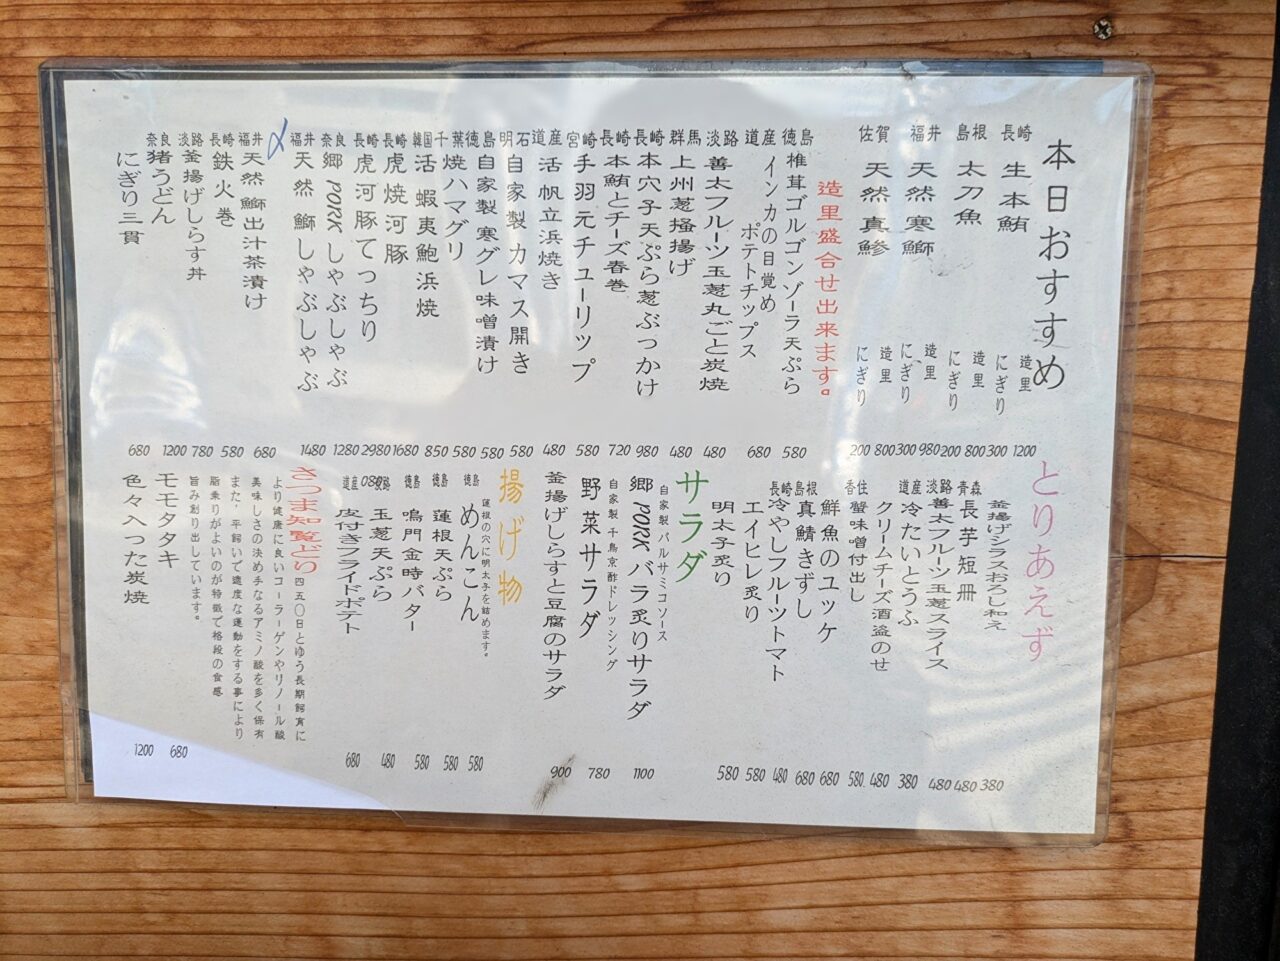 本日おすすめ
長崎 生本鮪 造里 1200
にぎり 300
島根 太刀魚 造里 800
にぎり 200
福井 天然寒鰤 造里 980
にぎり 300
佐賀 天然真鯵 造里 800
にぎり 200
造里盛合せ出来ます。
徳島 椎茸ゴルゴンゾーラ天ぷら 580
道産 インカの目覚め
ポテトチップス 680
淡路 善太フルーツ玉葱丸ごと炭焼 480
群馬 上州葱掻揚げ 480
長崎 本穴子天ぷら葱ぶっかけ 980
長崎 本鮪とチーズ春巻 720
宮崎 手羽元チューリップ 580
道産 活帆立浜焼き 480
明石 自家製カマス開き 580
徳島 自家製寒グレ味噌漬け 580
千葉 焼ハマグリ 580
韓国 活蝦夷鮑浜焼 850
長崎 虎焼河豚 1680
長崎 虎河豚てっちり 2980
奈良 郷PORKしゃぶしゃぶ 1280
福井 天然鰤しゃぶしゃぶ 1480
〆
福井 天然鰤出汁茶漬け 680
長崎 鉄火巻 580
淡路 釜揚げしらす丼 780
奈良 猪うどん 1200
にぎり三貫 680
とりあえず
釜揚げシラスおろし和え 380
青森 長芋短冊 480
淡路 善太フルーツ玉葱スライス 480
道産 冷たいとうふ 380
クリームチーズ酒盗のせ 480
香住 蟹味噌付出し 580
鮮魚のユッケ 680
島根 真鯖きずし 680
長崎 冷やしフルーツトマト 480
エイヒレ炙り 580
明太子炙り 580
サラダ
自家製バルサミコソース
郷PORKバラ炙りサラダ 1100
自家製 千鳥京酢ドレッシング
野菜サラダ 780
釜揚げしらすと豆腐のサラダ 900
揚げ物
蓮根の穴に明太子を詰めます。
徳島 めんこん 580
徳島 蓮根天ぷら 580
徳島 鳴門金時バター 580
淡路 玉葱天ぷら 480
道産 皮付きフライドポテト 680
さつま知覧どり
四五〇日とゆう長期飼育に
より健康に良いコーラーゲンやリノール酸
美味しさの決め手なるアミノ酸を多く保有
また、平飼いで適度な運動をする事により
脂乗りがよいのが特徴で格段の食感
旨み創り出しています。
モモタタキ 680
色々入った炭焼 1200